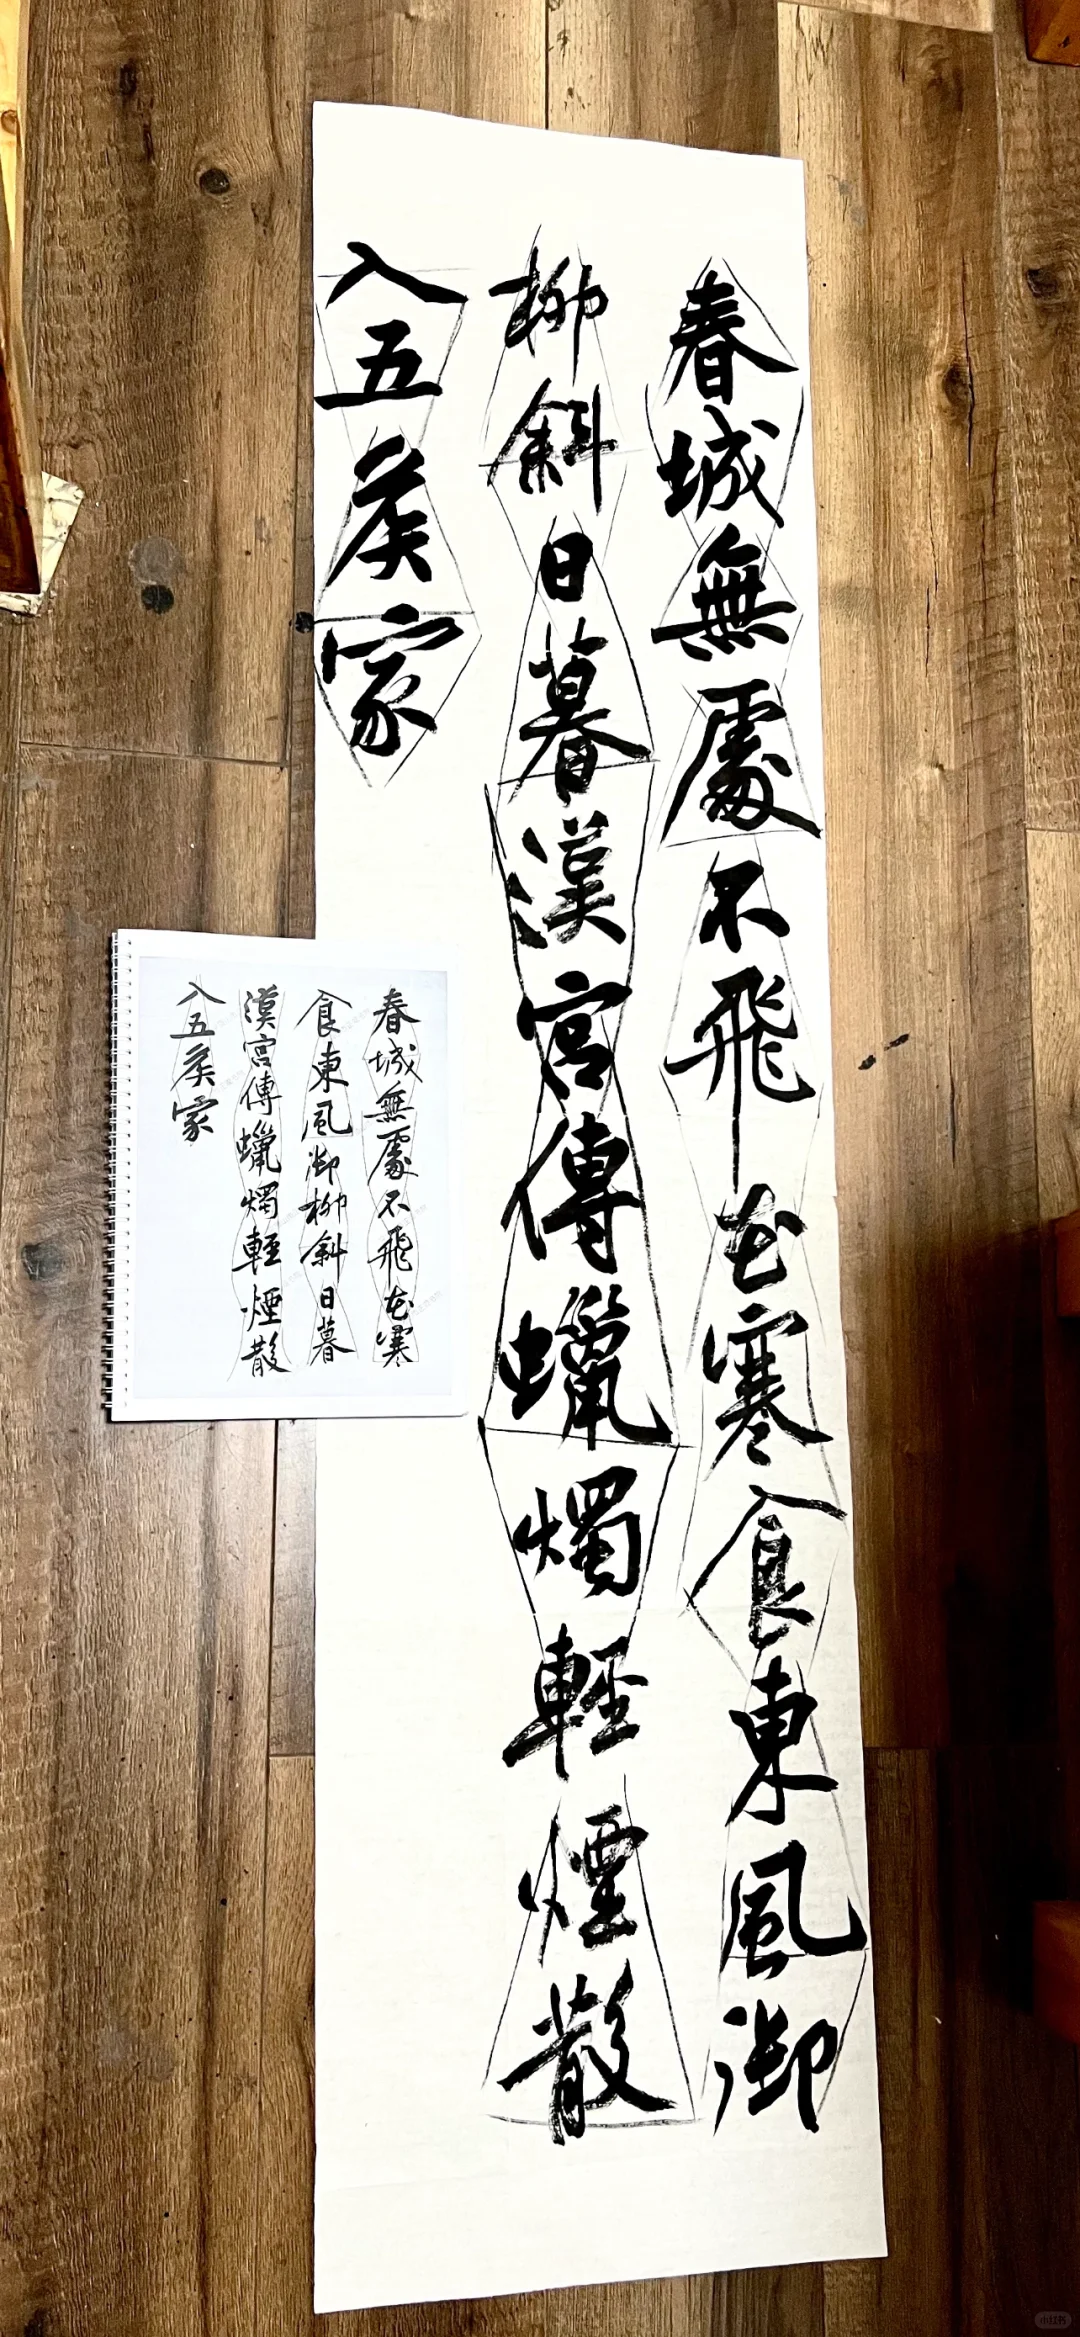 春城無處不飛花寒食東風御
柳斜日暮漢宮傳蠟燭輕煙散
入五矦家
春城無處不飛花寒
食東風御柳斜日暮
漢宮傳蠟燭輕煙散
入五矦家
小红书